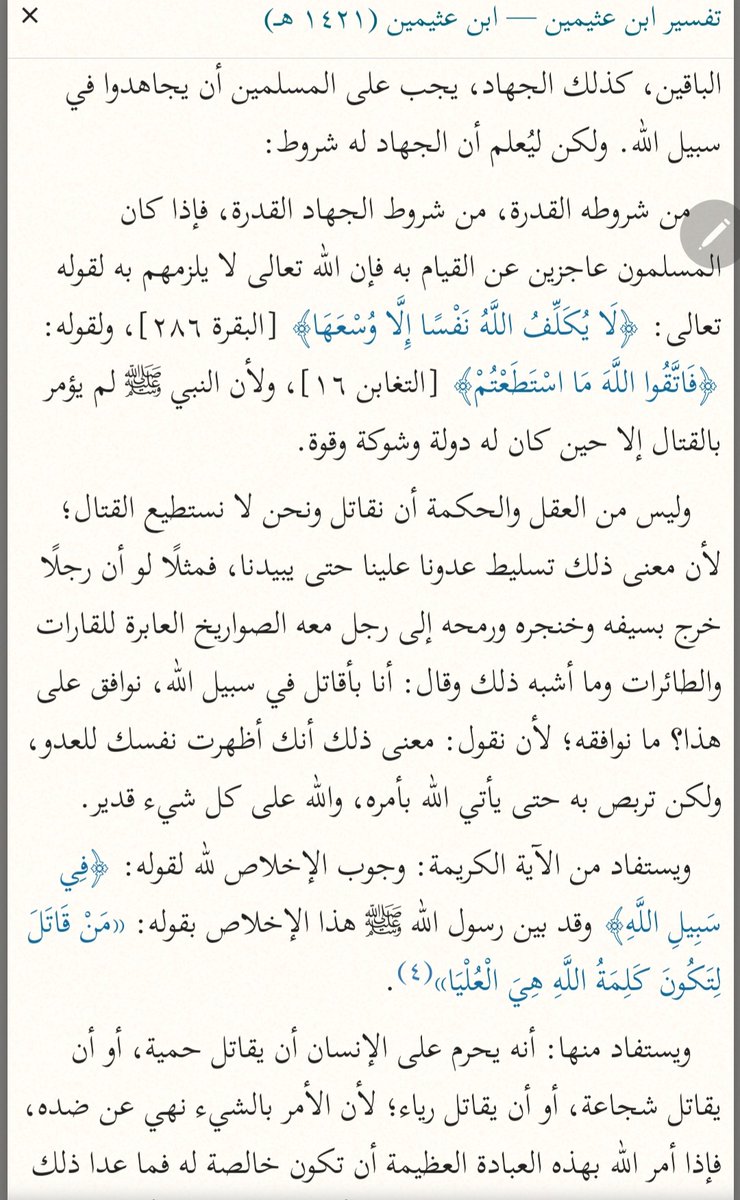 تفسير ابن عثيمين — ابن عثيمين (١٤٢١ هـ)
×
الباقين، كذلك الجهاد، يجب على المسلمين أن يجاهدوا في
سبيل الله. ولكن ليُعلم أن الجهاد له شروط:
من شروطه القدرة، من شروط الجهاد القدرة، فإذا كان
المسلمون عاجزين عن القيام به فإن الله تعالى لا يلزمهم به لقوله
تعالى: ﴿لَا يُكَلِّفُ اللَّهُ نَفْسًا إِلَّا وُسْعَهَا﴾ [البقرة ٢٨٦]، ولقوله:
﴿فَاتَّقُوا اللَّهَ مَا اسْتَطَعْتُمْ﴾ [التغابن ١٦]، ولأن النبي ﷺ لم يؤمر
بالقتال إلا حين كان له دولة وشوكة وقوة.
وليس من العقل والحكمة أن نقاتل ونحن لا نستطيع القتال؛
لأن معنى ذلك تسليط عدونا علينا حتى يبيدنا، فمثلًا لو أن رجلًا
خرج بسيفه وخنجره ورمحه إلى رجل معه الصواريخ العابرة للقارات
والطائرات وما أشبه ذلك وقال: أنا بأقاتل في سبيل الله، نوافق على
هذا؟ ما نوافقه؛ لأن نقول: معنى ذلك أنك أظهرت نفسك للعدو،
ولكن تربص به حتى يأتي الله بأمره، والله على كل شيء قدير.
ويستفاد من الآية الكريمة: وجوب الإخلاص لله لقوله: ﴿فِي
سَبِيلِ اللَّهِ﴾ وقد بين رسول الله ﷺ هذا الإخلاص بقوله: «مَنْ قَاتَلَ
لِتَكُونَ كَلِمَةُ اللَّهِ هِيَ الْعُلْيَا»(٤).
ويستفاد منها: أنه يحرم على الإنسان أن يقاتل حمية، أو أن
يقاتل شجاعة، أو أن يقاتل رياء؛ لأن الأمر بالشيء نهي عن ضده،
فإذا أمر الله بهذه العبادة العظيمة أن تكون خالصة له فما عدا ذلك